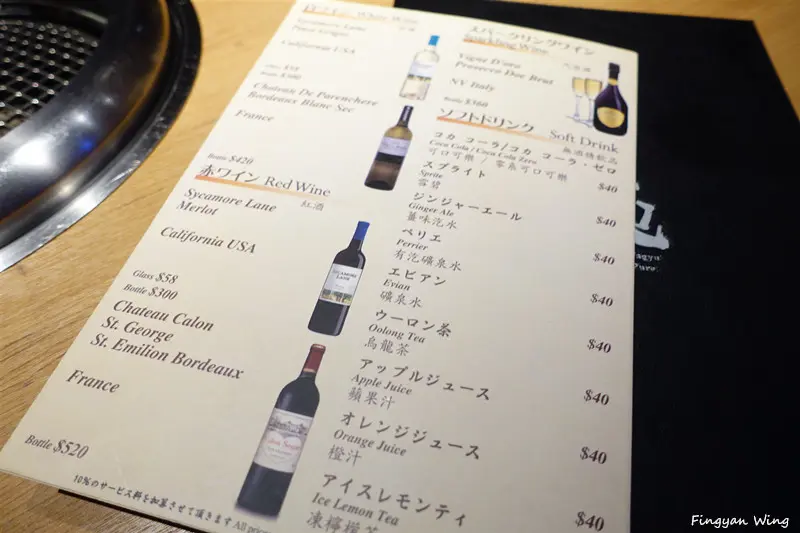 白ワイン White Wine
Sycamore Lane
Pinot Grigio
California USA
Glass $58
Bottle $300
Chateau De Parenchere
Bordeaux Blanc Sec
France
Bottle $420
赤ワイン Red Wine
紅酒
Sycamore Lane
Merlot
California USA
Glass $58
Bottle $300
Chateau Calon
St. George
St. Emilion Bordeaux
France
Bottle $520
10%のサービス料を加算させて頂きます All
スパークリングワイン
Sparkling Wine
Prosecco Doc Brut
NV Italy
Bottle $360
ソフトドリンク Soft Drink
無酒精飲品
コカ コーラ/コカ コーラ・ゼロ
Coca Cola / Coca Cola Zero
可口可樂 / 零系可口可樂
$40
スプライト
Sprite
雪碧
$40
ジンジャーエール
Ginger Ale
薑味汽水
$40
ペリエ
Perrier
有汽礦泉水
$40
エビアン
Evian
礦泉水
$40
ウーロン茶
Oolong Tea
烏龍茶
$40
アップルジュース
Apple Juice
蘋果汁
$40
オレンジジュース
Orange Juice
橙汁
$40
アイスレモンティ
Ice Lemon Tea
凍檸檬茶
Fingyan Wing